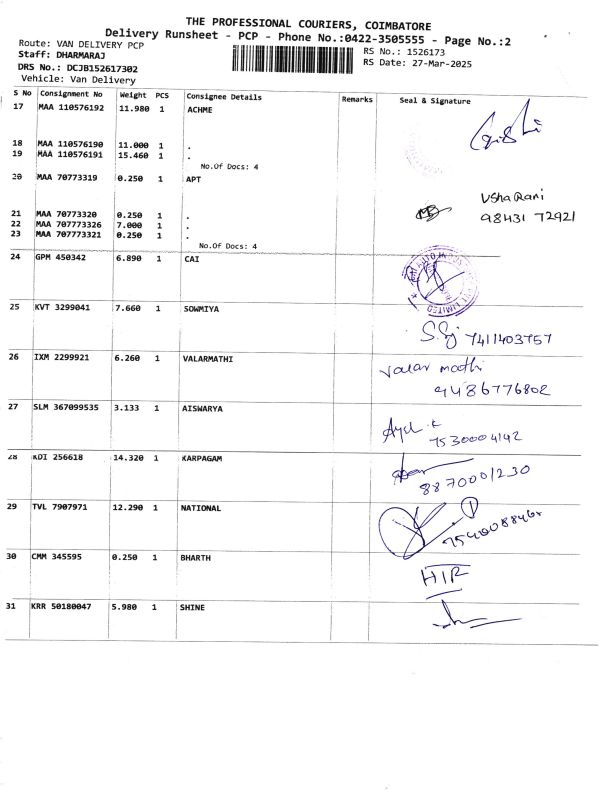 THE PROFESSIONAL COURIERS, COIMBATORE
Delivery Runsheet - PCP - Phone No.:0422-3505555 - Page No.:2
Route: VAN DELIVERY PCP
RS No.: 1526173
Staff: DHARMARAJ
RS Date: 27-Mar-2025
DRS No.: DCJB152617302
Vehicle: Van Delivery
S No Consignment No Weight PCS Consignee Details Remarks Seal & Signature
17 MAA 110576192 11.980 1 ACHME
18 MAA 110576190 11.000 1 .
19 MAA 110576191 15.460 1 .
No.Of Docs: 4
20 MAA 70773319 0.250 1 APT
Usha Rani
21 MAA 70773320 0.250 1 .
98431 72921
22 MAA 70773326 7.000 1 .
23 MAA 70773321 0.250 1 .
No.Of Docs: 4
24 GPM 450342 6.890 1 CAI
LIMITED
25 KVT 3299041 7.660 1 SOWMIYA
7411403757
26 IXM 2299921 6.260 1 VALARMATHI
valar mathi
9486776802
27 SLM 367099535 3.133 1 AISWARYA
7530004142
28 KDI 256618 14.320 1 KARPAGAM
8870001230
29 TVL 7907971 12.290 1 NATIONAL
30 CMM 345595 0.250 1 BHARTH
31 KRR 50180047 5.980 1 SHINE